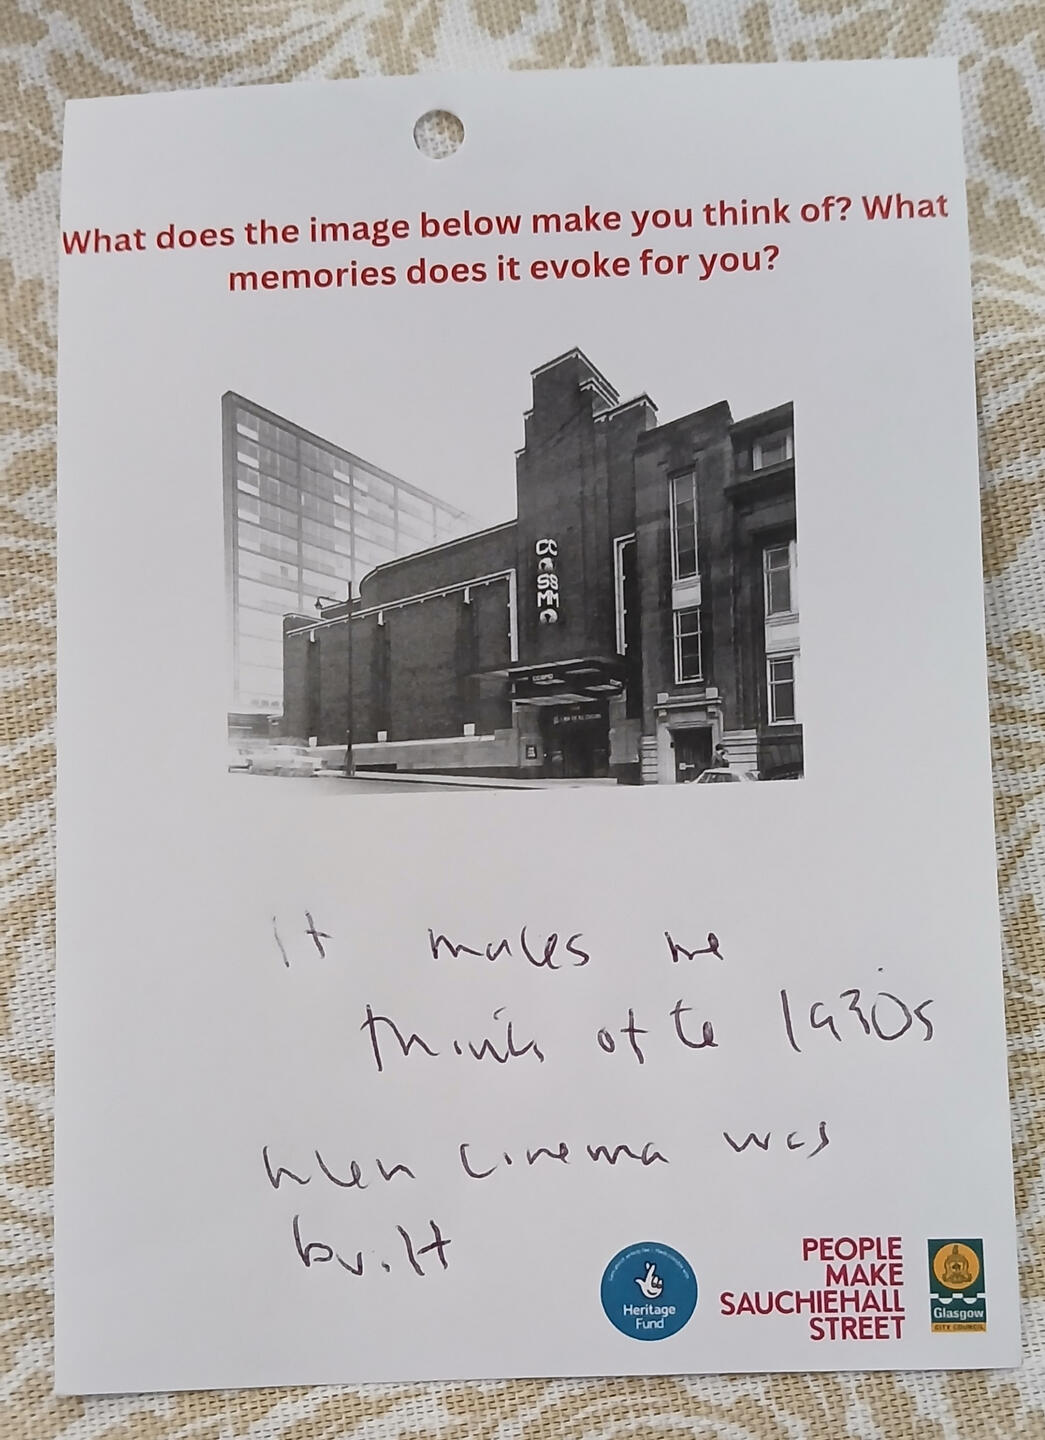 What does the image below make you think of? What
memories does it evoke for you?
COSMO
COSMO
It makes me
think of the 1930s
when cinema was
built
Heritage
Fund
PEOPLE
MAKE
SAUCHIEHALL
STREET
Glasgow
CITY COUNCIL